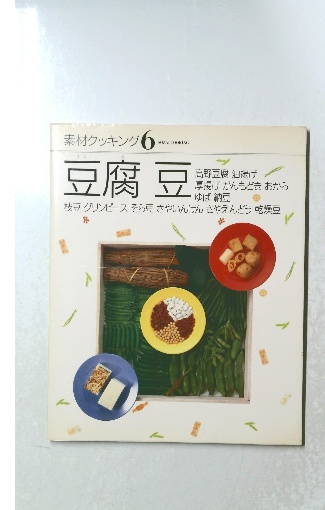 素材クッキング6
豆腐 豆
高野豆腐 油揚げ
厚揚げ がんもどき おから
ゆば 納豆
枝豆 グリンピース そら豆 さやいんげん さやえんどう 乾燥豆